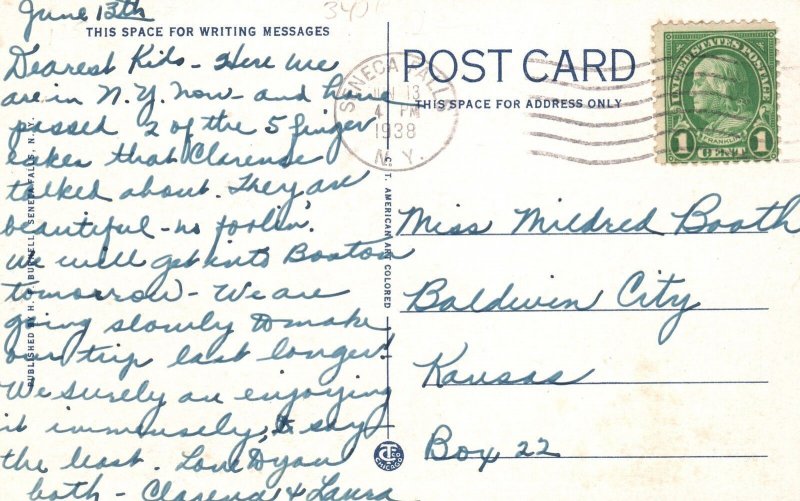 June 13th
THIS SPACE FOR WRITING MESSAGES
Dearest Kids - Here we
are in N.Y. now - and have
passed 2 of the 5 finger
lakes that Clarence
talked about. They are
beautiful - no foolin'.
We will get into Boston
tomorrow - We are
going slowly to make
our trip last longer!
We surely are enjoying
it immensely, to say
the least. Love to you
both - Clarence & Laura
PUBLISHED BY H. BUSHNELL, SENECA FALLS, N. Y.
C. T. AMERICAN ART COLORED
POST CARD
THIS SPACE FOR ADDRESS ONLY
SENECA FALLS
JUN 13
4 PM
1938
N.Y.
UNITED STATES POSTAGE
FRANKLIN
1 CENT 1
Miss Mildred Booth
Baldwin City
Kansas
Box 22
CHICAGO